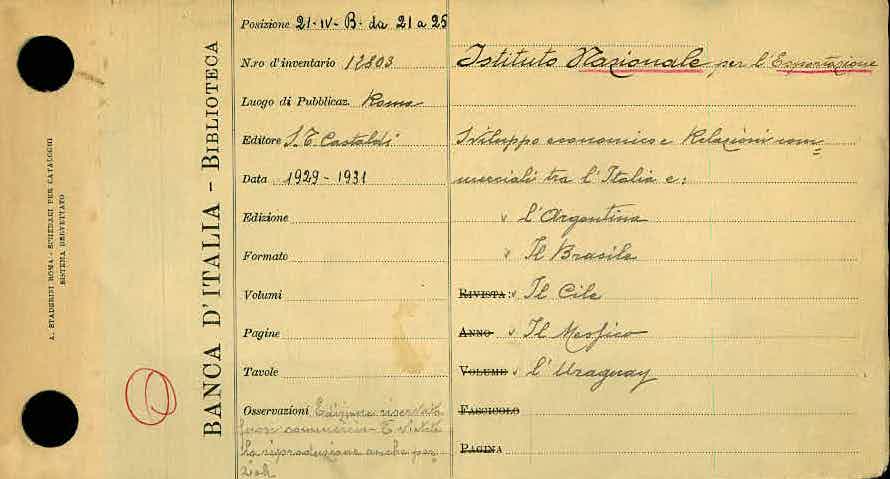 A. STADERINI ROMA - SCHEDARI PER CATALOGHI
SISTEMA BREVETTATO
BANCA D'ITALIA - BIBLIOTECA
Posizione 21-IV-B- da 21 a 25
N.ro d'inventario 12803
Luogo di Pubblicaz. Roma
Editore S. T. Castaldi
Data 1929-1931
Edizione
Formato
Volumi
Pagine
Tavole
Osservazioni Edizione riservata
fuori commercio - È vietata
la riproduzione anche par-
Istituto Nazionale per l'Esportazione
Sviluppo economico e Relazioni com=
merciali tra l'Italia e:
v L'Argentina
v Il Brasile
RIVISTA: v Il Cile
ANNO v Il Messico
VOLUME v L'Uruguay
FASCICOLO
PAGINA